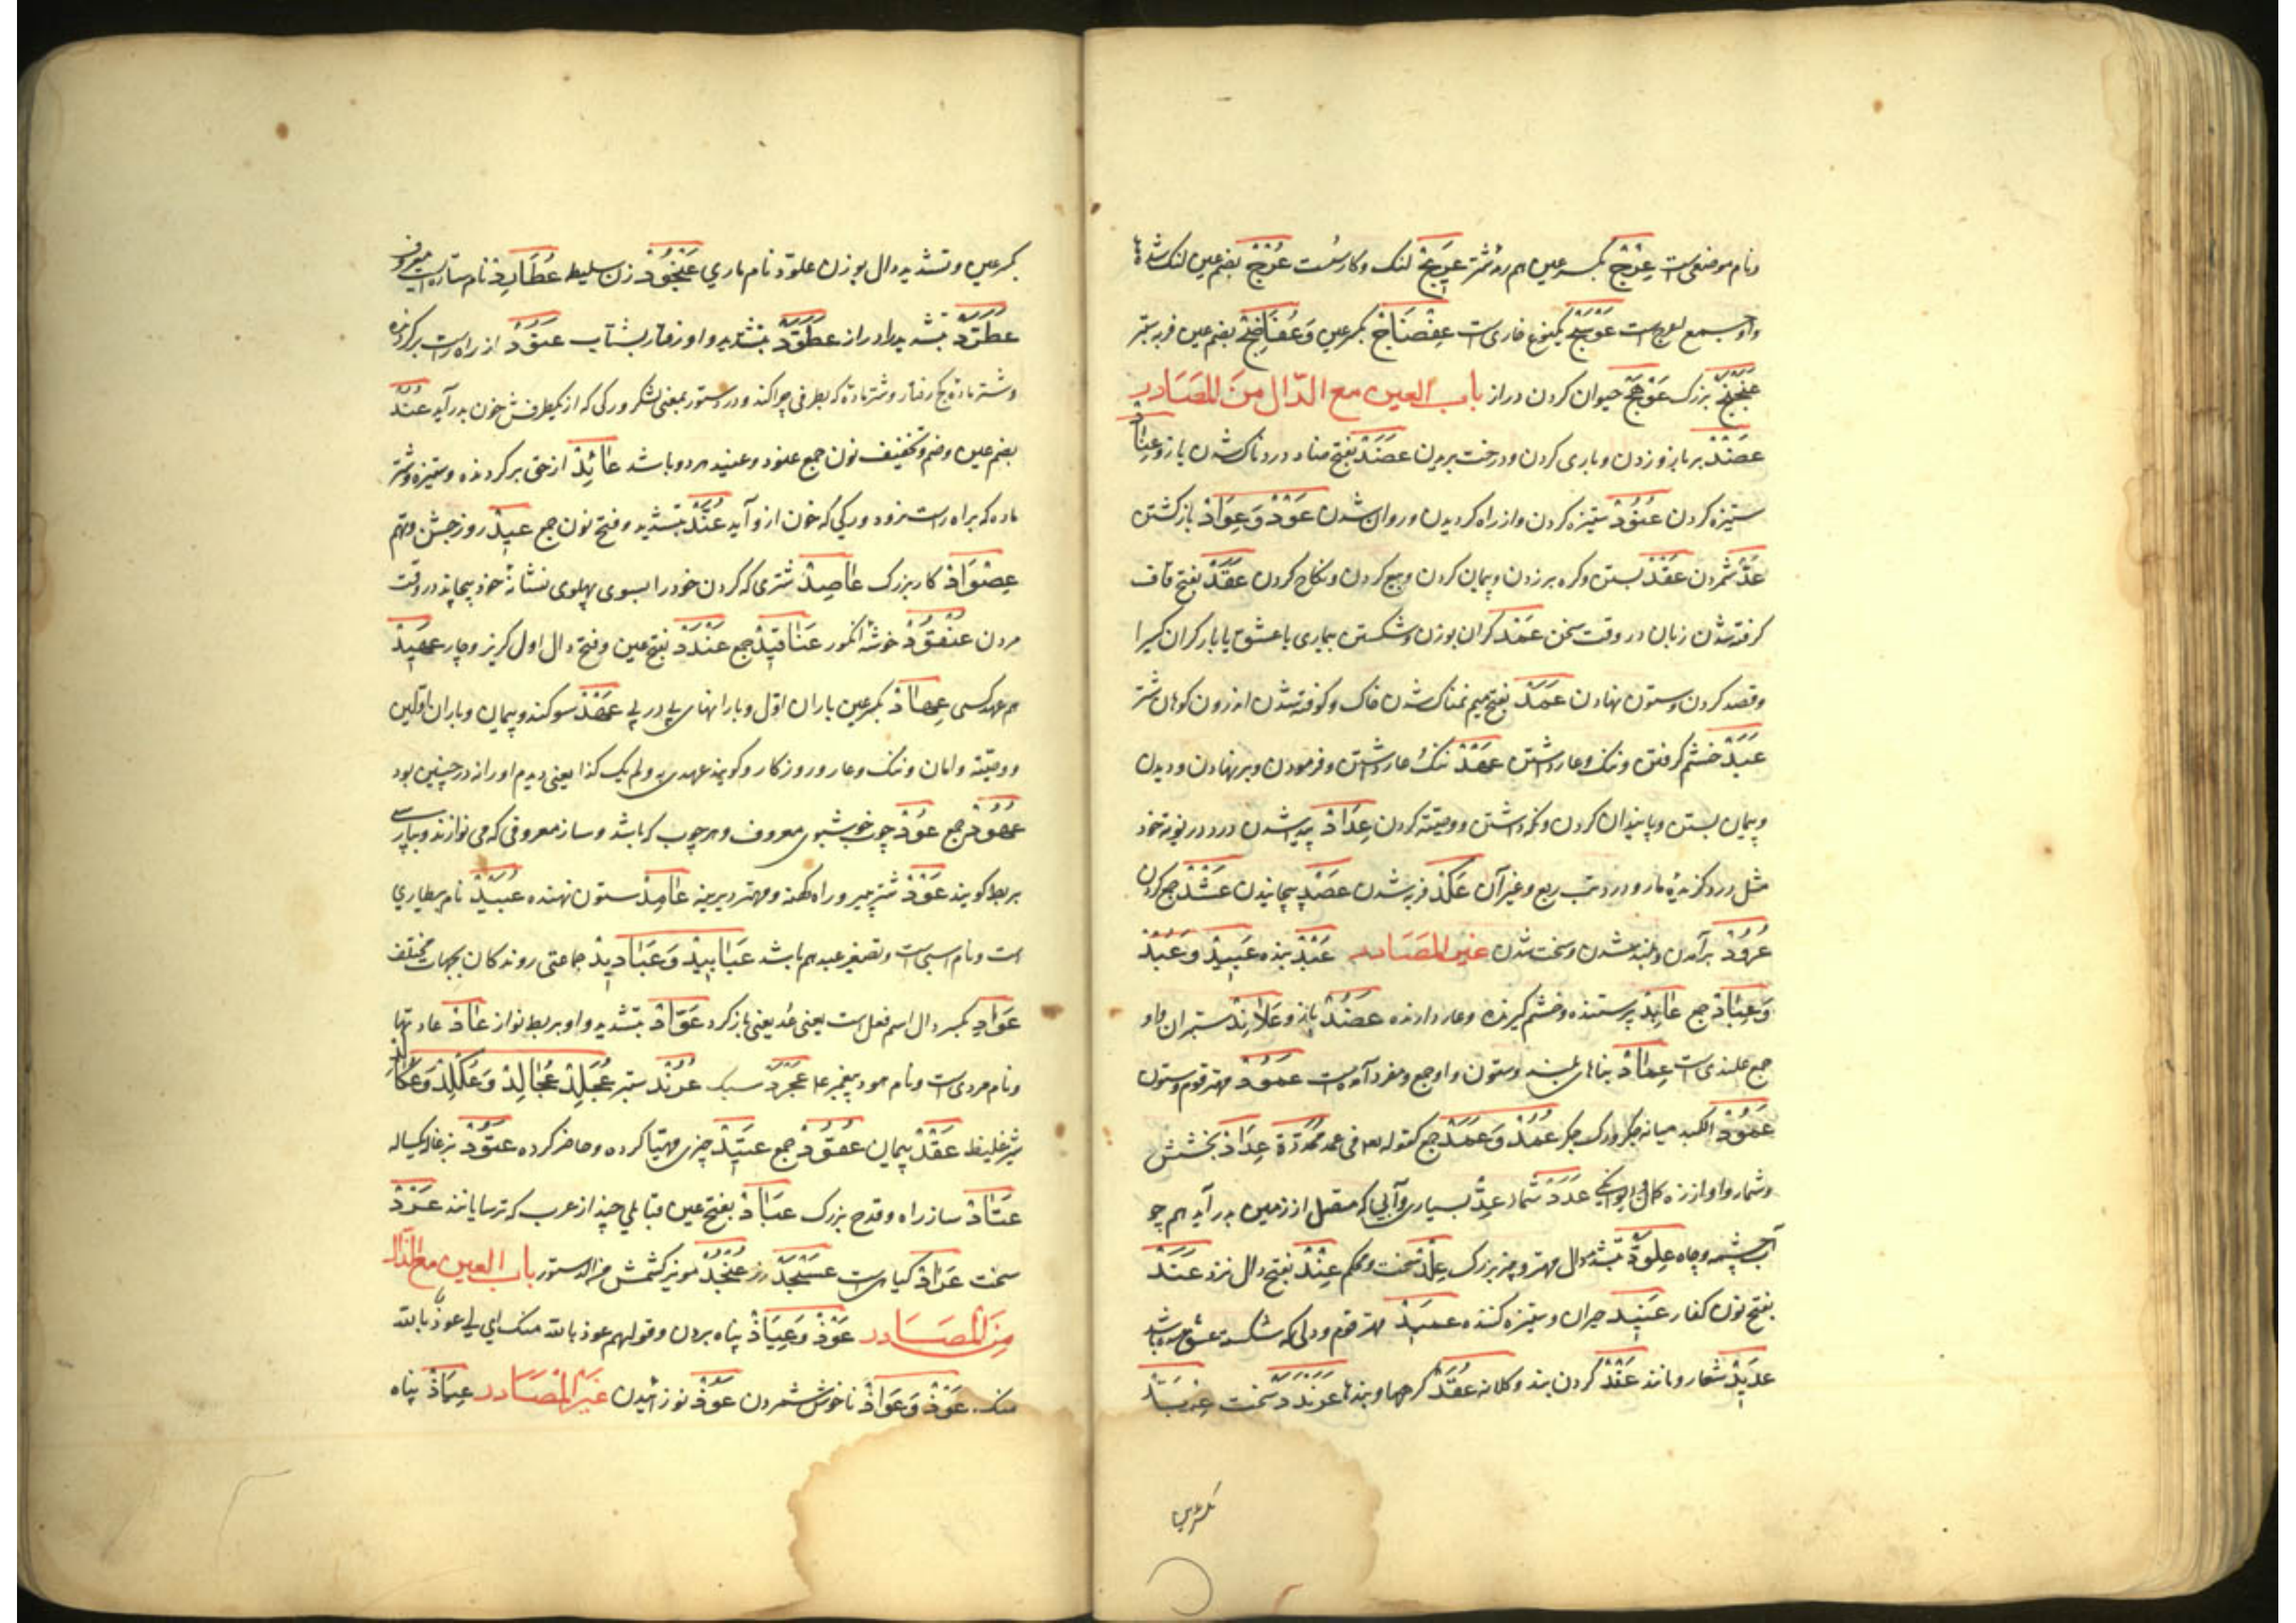 ونام موضعی است عِرْج بکسر عین هم رمهٔ شتر عَرِج لنک و کار سخت عُرْج بضم عین لنک شدها
واو جمع اعرج است عَوْسَج یکنوع خاری است عِفْضَاج بکسر عین وَعُفَاضِج بضم عین فربه ستبر
عَنَجْنَج بزرک عَوْهَج حیوان کردن دراز باب العین مع الدّال مِنَ المَصَادر
عَضْد بر بازو زدن ویاری کردن ودرخت بریدن عَضَد بفتح ضاد دردناک شدن بازو عِنَاد
ستیزه کردن عُنُوْد ستیزه کردن واز راه کردیدن وروان شدن عَوْد وَعِوَاد بازکشتن
عَدّ شمردن عَقْد بستن وکره بر زدن وپیمان کردن وبیع کردن ونکاح کردن عَقَد بفتح قاف
کرفته شدن زبان در وقت سخن عَمْد کران بوزن وشکستن بیماری یا عشق یا بار کران کسیرا
وقصد کردن وستون نهادن عَمَد بفتح میم نمناک شدن خاک وکوفته شدن اندرون کوهان شتر
عَبَد خشم کرفتن وننک وعار داشتن عَهْد ننک وعار داشتن وفرمودن وبر نهادن ودیدن
وپیمان بستن وپایندان کردن ونکه داشتن ووصیته کردن عِدَاد پیدا شدن درد در نوبة خود
مثل درد کزیدهٔ مار ودرد تب ربع وغیر آن عَکَد فربه شدن عَصْد پیچانیدن عَشْد جمع کردن
عُرُوْد برآمدن وبلند شدن وسخت شدن غیر المَصَادر عَبْد بنده عَبِیْد وَعُبُد
وَعِبَاد جمع عَابِد پرستنده وخشم کیرنده وعار دارنده عَضُد بازو عَلَانِد ستبران واو
جمع علندی است عِمَاد بناهای بلند وستون واو جمع ومفرد آمده است عَمُوْد مهتر قوم وستون
عَمُوْد الکبد میانه جکر ورک جکر عُمُد وَعَمَد جمع کقوله تعه فی عمد ممدّدة عِدَاد بخشش
وشمار واواز زه کمان عَدَد شمار عِدّ بسیاری وآبی که متصل از زمین بدر آید هم چو
آب چشمه وچاه عِلْوَدّ بتشدید دال مهتر وچیز بزرک عِلْد سخت ومحکم عِنْد بفتح دال نزد عَنَد
بفتح نون کنار عَنِیْد حیران وستیزه کننده عَمِیْد مهتر قوم ودلی که شکسته عشق شده باشد
عَدِیْد شمار ومانند عَقْد کردن بند وکلانه عُقَد کرهها وبندها عَرَنْدَد سخت عِرْبَدّ
بکسر عین وتشدید دال بوزن علوَدّ نام ماری عَنْجُوْد زن سلیط عُطَارِد نام ستارهٔ ایست معروف
عَطَرَّد بتشدید را دراز عَطَوَّد بتشدید واو رفتار بشتاب عَنُوْد از راه راست برکردنده
وشتر مادهٔ کج رفتار وشتر ماده که بطرفی چرا کند ودر دستور بمعنی لشکر ورکی که از یکطرفش خون بدر آید عُنُد
بضم عین وضم وتخفیف نون جمع عنود وعنید هر دو باشد عَانِد از حق برکردنده وستیزه وشتر
ماده که براه راست نرود ورکی که خون ازو آید عُنَّد بتشدید وفتح نون جمع عِیْد روز جشن وهم
عِصْوَاد کار بزرک عَاصِد شتری که کردن خود را بسوی پهلوی نشانهٔ خود بپیچاند در وقت
مردن عُنْقُوْد خوشهٔ انکور عَنَاقِیْد جمع عَنْدَد بفتح عین وفتح دال اول کریز وچاره عَهِیْد
هم عهد کسی عِهَاد بکسر عین باران اوّل وبارانهای پی در پی عَهْد سوکند وپیمان وباران اوّلین
ووصیّته وامان وننک وعار وروزکار وکویند عهدی به ولم یک کذا یعنی دیدم اورا نه در چنین بود
عُهُوْد جمع عُوْد چوب خوشبوی معروف وهر چوب که باشد وساز معروفی که می نوازند وبپارسی
بربط کویند عَوْد شتر پیر وراه کهنه ومهتر دیرینه عَامِد ستون نهنده عُبَیْد نام بیطاری
است ونام اسبی است وتصغیر عبد هم باشد عَبَابِیْد وَعَبَادِیْد جماعتی روندکان بجهات مختلف
عَوَادِ بکسر دال اسم فعل است یعنی عُد یعنی بازکرد عَوَّاد بتشدید واو بربط نواز عَاد عادتها
ونام مردی است ونام هود پیغمبر ع عَجَرَّد سبک عُرُنْد ستبر عُجَلِد عُجَالِد وَعُکَلِد وَعُکَالِد
شیر غلیظ عَقْد پیمان عُقُوْد جمع عَتِیْد چیزی مهیّا کرده وحاضر کرده عَتُوْد بزغاله یکساله
عَتَاد ساز راه وقدح بزرک عَبَاد بفتح عین قبایلی چند از عرب که ترسایانند عَرْد
سخت عَرَاد کیاهی است عَسْجَد زر عُنْجُد مویز کشمش من الدستور باب العین مع الذال
مِنَ المَصَادر عَوْذ وَعِیَاذ پناه بردن وقولهم عوذ بالله منک ای اعوذ بالله
منک عَوْذ وَعَوَاذ ناخوش شمردن عَوْذ نوزائیدن غَیر المَصَادر عِیَاذ پناه